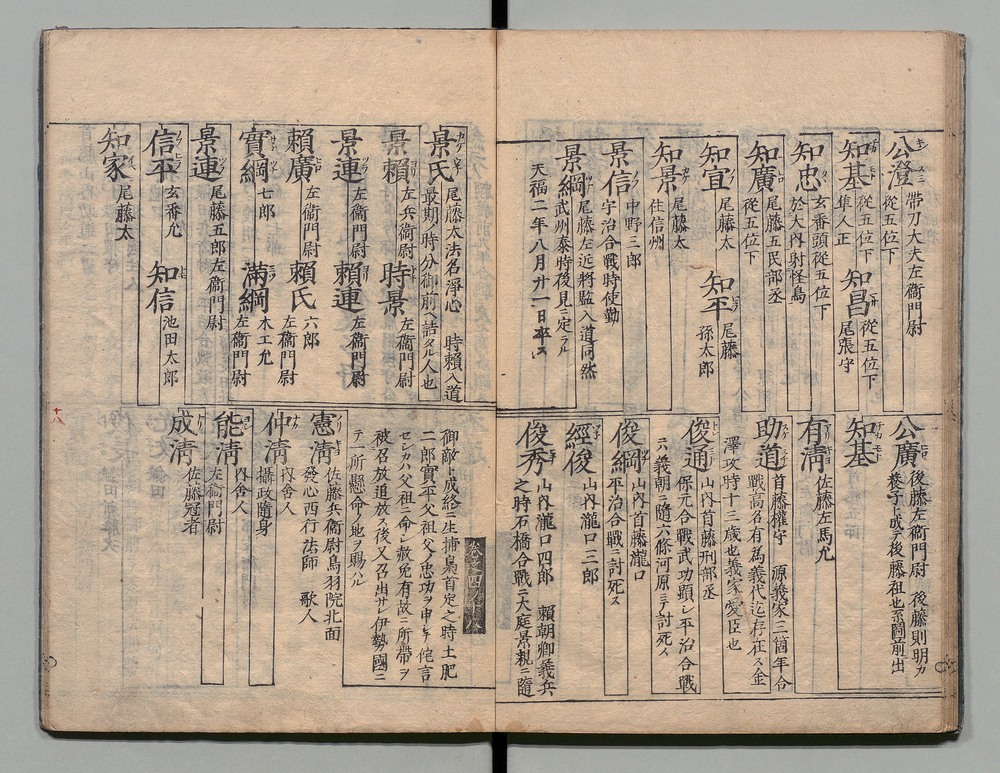 公澄 帯刀大夫左衞門尉
從五位下
知基 從五位下
隼人正
知昌 從五位下
尾張守
知忠 玄番頭從五位下
於大內射怪鳥
知廣 尾藤五民部丞
從五位下
知宣 尾藤太
知平 尾藤
孫太郎
知景 尾藤太
住信州
景信 中野三郎
宇治合戰時使勤
景綱 尾藤左近將監入道同然
武州泰時後見ニ定ラル
天福二年八月廿一日卒ス
公廣 後藤左衞門尉 後藤則明カ
養子ト成テ後藤祖也系圖前出
知基
有清 佐藤左馬允
助道 首藤權守 源義家三箇年合
戰高名有為義代迄存在ス金
澤攻時十三歳也義家愛臣也
俊通 山內首藤刑部丞
保元合戰武功顕シ平治合戰
ニハ義朝ニ隨六條河原ニテ討死ス
俊綱 山內首藤瀧口
平治合戰ニ討死ス
經俊 山內瀧口三郎
俊秀 山內瀧口四郎 賴朝卿義兵
之時石橋合戰ニ大庭景親ニ隨
景氏 尾藤太法名淨心 時賴入道
最期ノ時分御前ヘ詰タル人也
景賴 左兵衞尉
時景 左衞門尉
景連 左衞門尉
賴連 左衞門尉
賴廣 左衞門尉
賴氏 六郎
左衞門尉
實綱 七郎
滿綱 木工允
左衞門尉
景連 尾藤五郎左衞門尉
信平 玄番允
知信 池田太郎
知家 尾藤太
御敵ト成終ニ生捕梟首定之時土肥
二郎實平父祖父ノ忠功ヲ申シテ侘言
セシカハ父祖ニ命シ赦免有故ニ所帶ヲ
被召放追放ス後又召出サレ伊勢國ニ
テ一所懸命ノ地ヲ賜ハル
憲清 佐藤兵衞尉鳥羽院北面
發心西行法師 歌人
仲清 內舍人
攝政隨身
能清 內舍人
左衞門尉
成清 佐藤冠者
十八